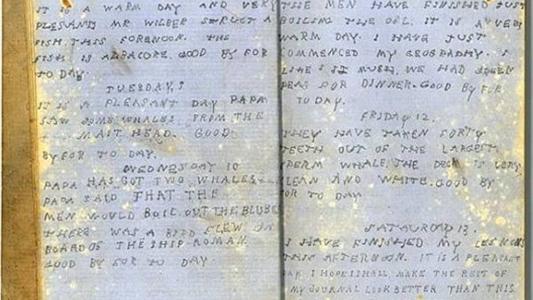 IT IS A WARM DAY AND VERY
PLESANT MR WILBER STRUCT A
FISH THIS FORENOON. THE
FISH IS ALBACORE. GOOD BY FOR
TO DAY.
TUESDAY, 9
IT IS A PLEASANT DAY PAPA
SAW SOME WHALES. FROM THE
MAST HEAD. GOOD
BY FOR TO DAY.
WEDNESDAY 10
PAPA HAS GOT TWO WHALES
PAPA SAID THAT THE
MEN WOULD BOIL OUT THE BLUBE
THERE WAS A BIRD FLEW ON
BOARD OF THE SHIP ROMAN.
GOOD BY FOR TO DAY
THE MEN HAVE FINISHED JUST
BOILING THE OIL. IT IS A VERY
WARM DAY. I HAVE JUST
COMMENCED MY GEOGRAPHY. I
LIKE IT MUCH, WE HAD GREEN
PEAS FOR DINNER. GOOD BY FOR
TO DAY.
FRIDAY 12.
THEY HAVE TAKEN FORTY
TEETH OUT OF THE LARGEST
SPERM WHALE. THE DECK IS VERY
CLEAN AND WHITE. GOOD BY
FOR TO DAY
SATAURDAY 13.
I HAVE FINISHED MY LESSONS
THIS AFTERNOON. IT IS A PLEASANT
DAY. I HOPE I SHALL MAKE THE REST OF
MY JOURNAL LOOK BETTER THAN THIS